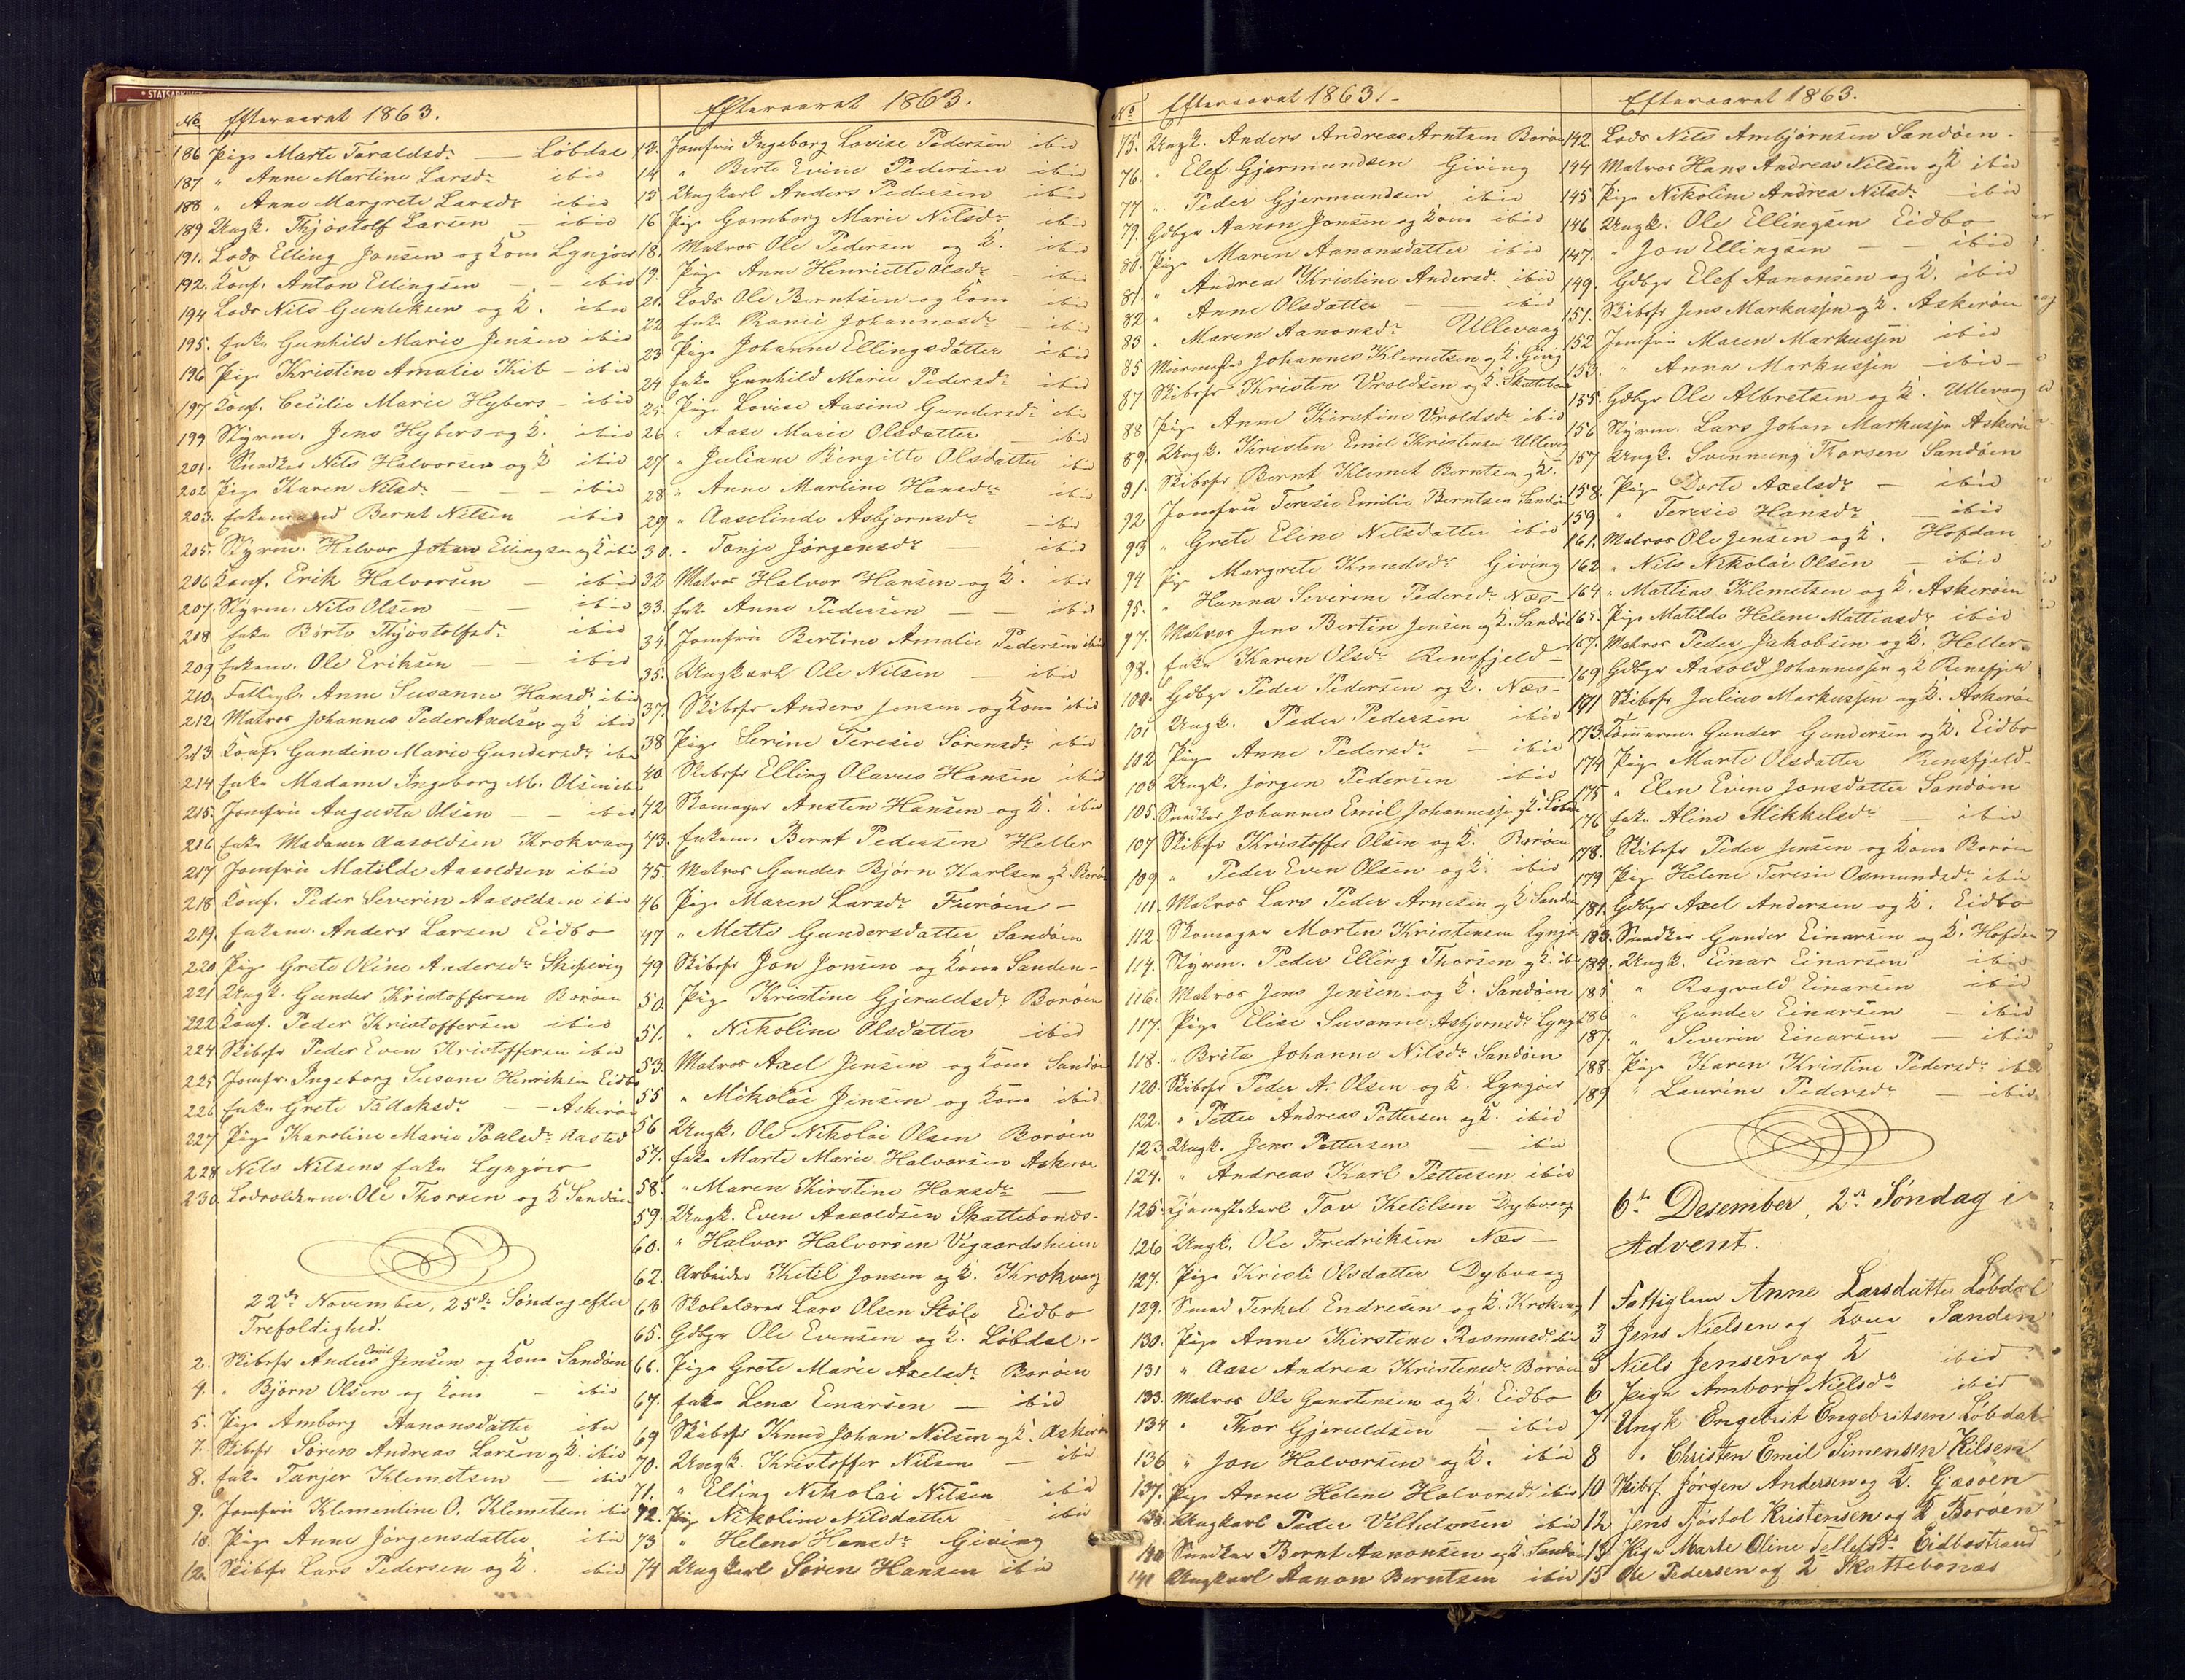 STATSARKIVET
No Efteraaret 1863.
186 Pige Marte Taraldsdr — Løbdal
187 " Anne Martine Larsdr ibid
188 " Anne Margrete Larsdr ibid
189 Ungk. Thjøstolf Larsen — ibid
191. Lods Elling Jonsen og Kone Lyngøer
192. Konf. Anton Ellingsen — ibid
194 Lods Nils Gunleksen og K. ibid
195. Enke Gunhild Marie Jensen ibid
196 Pige Kristine Amalie Kib — ibid
197 Konf. Cecilie Marie Hybers — ibid
199 Styrm. Jens Hybers og K. ibid
201. Snedker Nils Halvorsen og K ibid
202 Pige Karen Nilsdr — — ibid
203. Enkemand Bernt Nilsen ibid
205. Styrm. Halvor Johan Ellingsen og K ibid
206 Konf. Erik Halvorsen — ibid
207. Styrm. Nils Olsen — — ibid
208 Enke Birte Thjøstolfsdr ibid
209 Enkem. Ole Eriksen — — ibid
210. Fattigl. Anne Susanne Hansdr ibid
212 Matros Johannes Peder Axelsen og K ibid
213 Konf. Gundine Marie Gundersdr ibid
214 Enke Madame Ingeborg M. Olsen ibid
215. Jomfru Augusta Olsen — — ibid
216 Enke Madame Aasoldsen Krokvaag
217 Jomfru Matilde Aasoldsen ibid
218 Konf. Peder Severin Aasoldsen ibid
219. Enkem. Anders Larsen Eidbo
220 Pige Grete Oline Andersdr Skipsvig
221 Ungk. Gunder Kristoffersen Borøen
222 Konf. Peder Kristoffersen ibid
224 Skibsfr Peder Even Kristoffersen ibid
225 Jomfr. Ingeborg Susane Henriksen Eidbo
226 Enke Grete Tallaksdr — — Askerøen
227 Pige Karoline Marie Poulsdr Aasted
228 Nils Nilsens Enke Lyngøer
230. Lodsoldermr. Ole Thorsen og K Sandøen
22de November, 25de Søndag efter
Trefoldighed.
2. Skibsfr Anders Emil Jensen og Kone Sandøen
4. " Bjørn Olsen og Kone — ibid
5. Pige Amborg Aanonsdatter ibid
7. Skibsfr Søren Andreas Larsen og K. ibid
8. Enke Tanjer Klemetsen — ibid
9. Jomfru Klementine O. Klemetsen ibid
10. Pige Anne Jørgensdatter ibid
12. Skibsfr Lars Pedersen og K. ibid
Efteraaret 1863.
13. Jomfru Ingeborg Lovise Pedersen ibid
14 " Birte Evine Pedersen ibid
15 Ungkarl Anders Pedersen ibid
16 Pige Gomborg Marie Nilsdr ibid
18. Matros Ole Pedersen og K. ibid
19. Pige Anne Henriette Olsdr — ibid
21. Lods Ole Berntsen og Kone ibid
22 Enke Ranei Johannesdr — ibid
23 Pige Johanne Ellingsdatter ibid
24 Enke Gunhild Marie Pedersdr ibid
25. Pige Lovise Aasine Gundersdr ibid
26 " Aase Marie Olsdatter — ibid
27 " Juliane Birgitte Olsdatter ibid
28 " Anne Martine Hansdr ibid
29. " Aaselinde Asbjørnsdr — ibid
30. " Tonje Jørgensdr — ibid
32 Matros Halvor Hansen og K. ibid
33. Enke Anne Pedersen — — ibid
34 Jomfru Bertine Amalie Pedersen ibid
35. Ungkarl Ole Nilsen — ibid
37. Skibsfr Anders Jensen og Kone ibid
38 Pige Serine Teresie Sørensdr ibid
40. Skibsfr Elling Olavus Hansen ibid
42 Skomager Ansten Hansen og K. ibid
43. Enkem. Bernt Pedersen Heller
45. Matros Gunder Bjørn Karlsen og K. Borøen
46 Pige Maren Larsdr Furøen —
47 " Mette Gundersdatter Sandøen
49 Skibsfr Jon Jonsen og Kone Sanden —
50. Pige Kristine Gjeruldsdr Borøen
51. " Nikoline Olsdatter ibid
53. Matros Axel Jensen og Kone Sandøen
55 " Nikolai Jensen og Kone ibid
56 Ungk. Ole Nikolai Olsen Borøen
57. Enke Marte Marie Halvorsen Askerøen
58. " Maren Kirstine Hansdr —
59. Ungk. Even Aasoldsen Skattebonæs —
60. " Halvor Halvorsen Vegaardsheien
62. Arbeider Ketil Jonsen og K. Krokvaag
63 Skolelærer Lars Olsen Støle Eidbo
65. Gdbgr Ole Evensen og K. Løbdal. —
66. Pige Grete Marie Axelsdr Borøen
67. Enke Lena Einarsen — ibid
69 Skibsfr Knud Johan Nilsen og K. Askerøen
70. Ungk. Kristoffer Nilsen — ibid
71. " Elling Nikolai Nilsen ibid
72. Pige Nikoline Nilsdatter — ibid
73 " Helene Hansdr Giving
74 Ungkarl Søren Hansen ibid
No Efteraaret 1863. —
75. Ungk. Anders Andreas Arntsen Borøen
76. " Elef Gjermundsen Giving
77 " Peder Gjermundsen ibid
79. Gdbgr Aanon Jonsen og Kone ibid
80. Pige Maren Aanonsdatter ibid
81. " Andrea Kristine Andersdr ibid
82 " Anne Olsdatter — — ibid
83 " Maren Aanonsdr Ullevaag
85 Muremester Johannes Klemetsen og K. Giving
87. Skibsfr Kristen Vroldsen og K. Skattebonæs
88 Pige Anne Kirstine Vroldsdr ibid
89. Ungk. Kristen Emil Kristensen Ullevaag
91. Skibsfr Bernt Klemet Berntsen og K.
92 Jomfru Teresie Emilie Berntsen Sandøen
93 " Grete Eline Nilsdatter ibid
94 Pige Margrete Knudsdr Giving
95. " Hanna Severine Pedersdr Næs —
97. Matros Jens Bertin Jensen og K. Sandøen
98. Enke Karen Olsdr Rensfjeld —
100. Gdbgr Peder Pedersen og K. Næs —
101 Ungk. Peder Pedersen ibid
102 Pige Anne Pedersdr — ibid
103 Ungk. Jørgen Pedersen ibid
105 Snedker Johannes Emil Johannessen og K. Løbdal
107 Skibsfr Kristoffer Olsen og K. Borøen
109 " Peder Even Olsen og K. ibid
111. Matros Lars Peder Arnesen og K. Sandøen
112. Skomager Morten Kristensen Lyngør
114. Styrm. Peder Elling Thorsen og K. ibid
116. Matros Jens Jensen og K. Sandøen
117. Pige Elise Susanne Asbjørnsdr Lyngør
118. " Brita Johanne Nilsdr Sandøen
120. Skibsfr Peder A. Olsen og K. Lyngøer
122. " Petter Andreas Pettersen og K. ibid
123. Ungk. Jens Pettersen — ibid
124. " Andreas Karl Pettersen ibid
125. Tjenestekarl Tov Ketilsen Dybvaag
126 Ungk. Ole Fredriksen Næs —
127. Pige Kristi Olsdatter Dybvaag
129. Smed Terkel Endresen og K. Krokvaag
130. Pige Anne Kirstine Rasmusdr ibid
131 " Aase Andrea Kristensdr Borøen
133. Matros Ole Gunstensen og K. Eidbo
134 " Thor Gjeruldsen — ibid
136 " Jon Halvorsen og K. ibid
137. Pige Anne Helene Halvorsdr ibid
138. Ungkarl Peder Vilhelmsen ibid
140 Snedker Bernt Aanonsen og K. Sandøen
141 Ungkarl Aanon Berntsen ibid
Efteraaret 1863.
142. Lods Nils Ambjørnsen Sandøen —
144 Matros Hans Andreas Nilsen og K ibid
145. Pige Nikoline Andrea Nilsdr — ibid
146 Ungk. Ole Ellingsen Eidbo
147. " Jon Ellingsen — — ibid
149. Gdbgr Elef Aanonsen og K. ibid
151. Skibsfr Jens Markussen og K. Askerøen
152 Jomfru Maren Markussen ibid
153. " Anna Markussen — ibid —
155. Gdbgr Ole Albretsen og K. Ullevaag
156 Styrm. Lars Johan Markussen Askerøen
157 Ungk. Svennung Torsen Sandøen
158. Pige Dorte Axelsdr — ibid
159 " Teresie Hansdr — ibid
161. Matros Ole Jensen og K. Hofdan
162 " Nils Nikolai Olsen — ibid
164 " Mattias Klemetsen og K. Askerøen
165. Pige Matilde Helene Mattiasdr ibid
167. Matros Peder Jakobsen og K. Heller
169 Gdbgr Aasold Johannessen og K Rensfjeld
171 Skibsfr Julius Markussen og K. Askerøen
173. Tømmerm. Gunder Gundersen og K. Eidbo
174 Pige Marte Olsdatter Rensfjeld —
175 " Elen Evine Jonsdatter Sandøen
176 Enke Aline Mikkelsdr — ibid
178. Skibsfr Peder Jensen og Kone Borøen
179 Pige Helene Teresie Osmundsdr ibid
181. Gdbgr Axel Andersen og K. Eidbo
183. Snedker Gunder Einarsen og K. Hofdan
184. Ungk. Einar Einarsen ibid
185 " Ragvald Einarsen ibid
186 " Gunder Einarsen — ibid
187. " Severin Einarsen — ibid
188. Pige Karen Kristine Pedersdr ibid
189 " Laurine Pedersdr — ibid
6te Desember, 2n Søndag i
Advent.
1 Fattiglem Anne Larsdatter Løbdal
3 Jens Nielsen og Kone Sanden
5 Niels Jensen og K ibid
6 Pige Amborg Nielsdr ibid
7 Ungk. Engebrit Engebritsen Løbdal
8 " Christen Emil Simensen Kilsen
10 Skibsf. Jørgen Andersen og K. Gjæsøen
12 Jens Tjøstol Kristensen og K Borøen
13 Pige Marte Oline Tellefsdr Eidbostrand
15 Ole Pedersen og K Skattebonæs